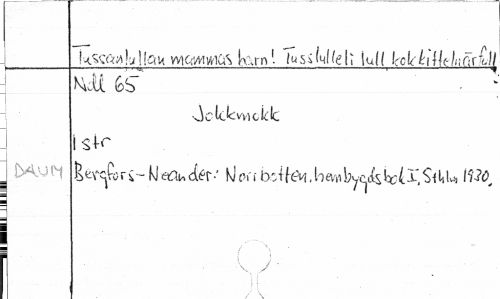 Tussanlullan mammas barn! Tusslulleli lull kokkittelnärfull
Ndl 65
Jokkmokk
1 str
DAUM
Bergfors-Neander: Norrbotten, hembygdsbok I, Sthlm 1930.